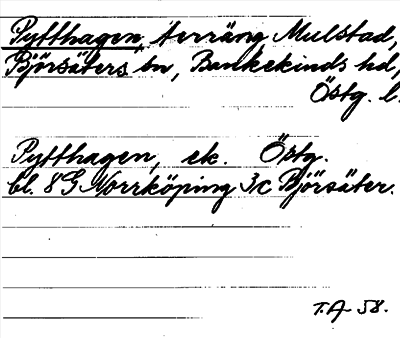 Pytthagen, terräng Mulstad,
Björsäters sn, Bankekinds hd,
Östg. l.
Pytthagen, ek. Östg.
bl. 8G Norrköping 3c Björsäter.
T.A. 58.